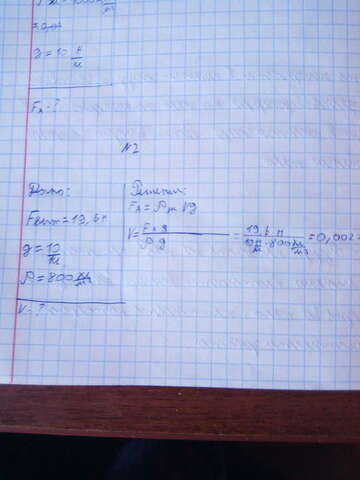 g = 10 Н/кг
Fₐ - ?
№2
Дано:
Fвыт = 19,6 Н
g = 10 Н/кг
ρ = 800 кг/м³
V - ?
Решение:
Fₐ = ρж Vg
V = Fₐ g / ρ g = 19,6 Н / 10 Н/кг · 800 кг/м³ = 0,002